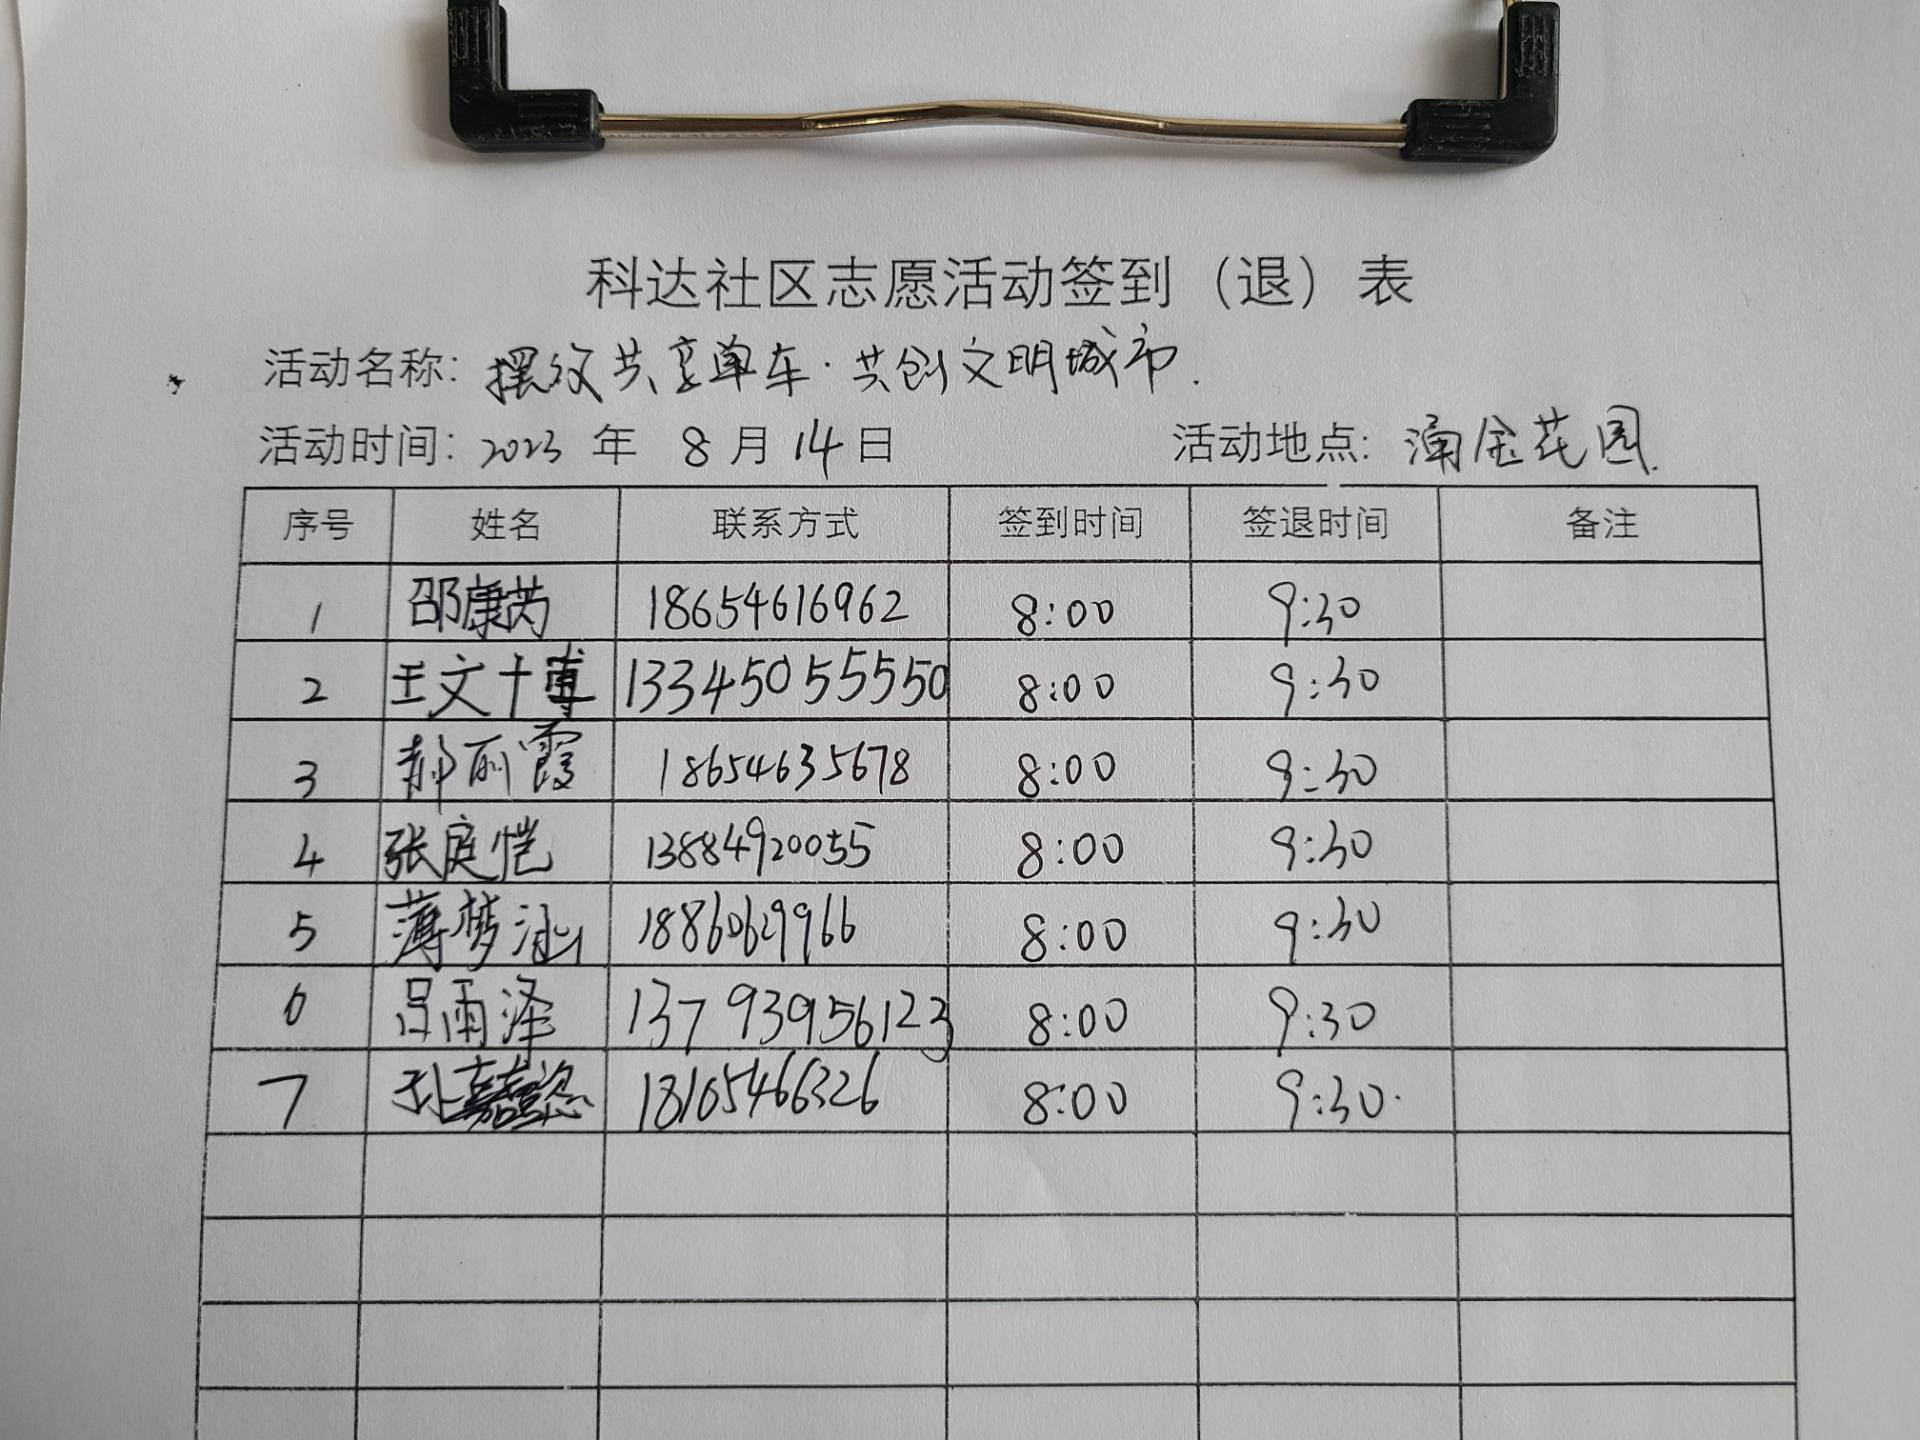 科达社区志愿活动签到（退）表
活动名称: 摆放共享单车·共创文明城市.
活动时间: 2023 年 8 月 14 日 活动地点: 涌金花园.
序号 姓名 联系方式 签到时间 签退时间 备注
1 邵康芮 18654616962 8:00 9:30
2 王文博 13345055550 8:00 9:30
3 郝丽霞 18654635678 8:00 9:30
4 张庭恺 13884920055 8:00 9:30
5 薄梦涵 18860629966 8:00 9:30
6 吕雨泽 13793956123 8:00 9:30
7 18105466326 8:00 9:30.